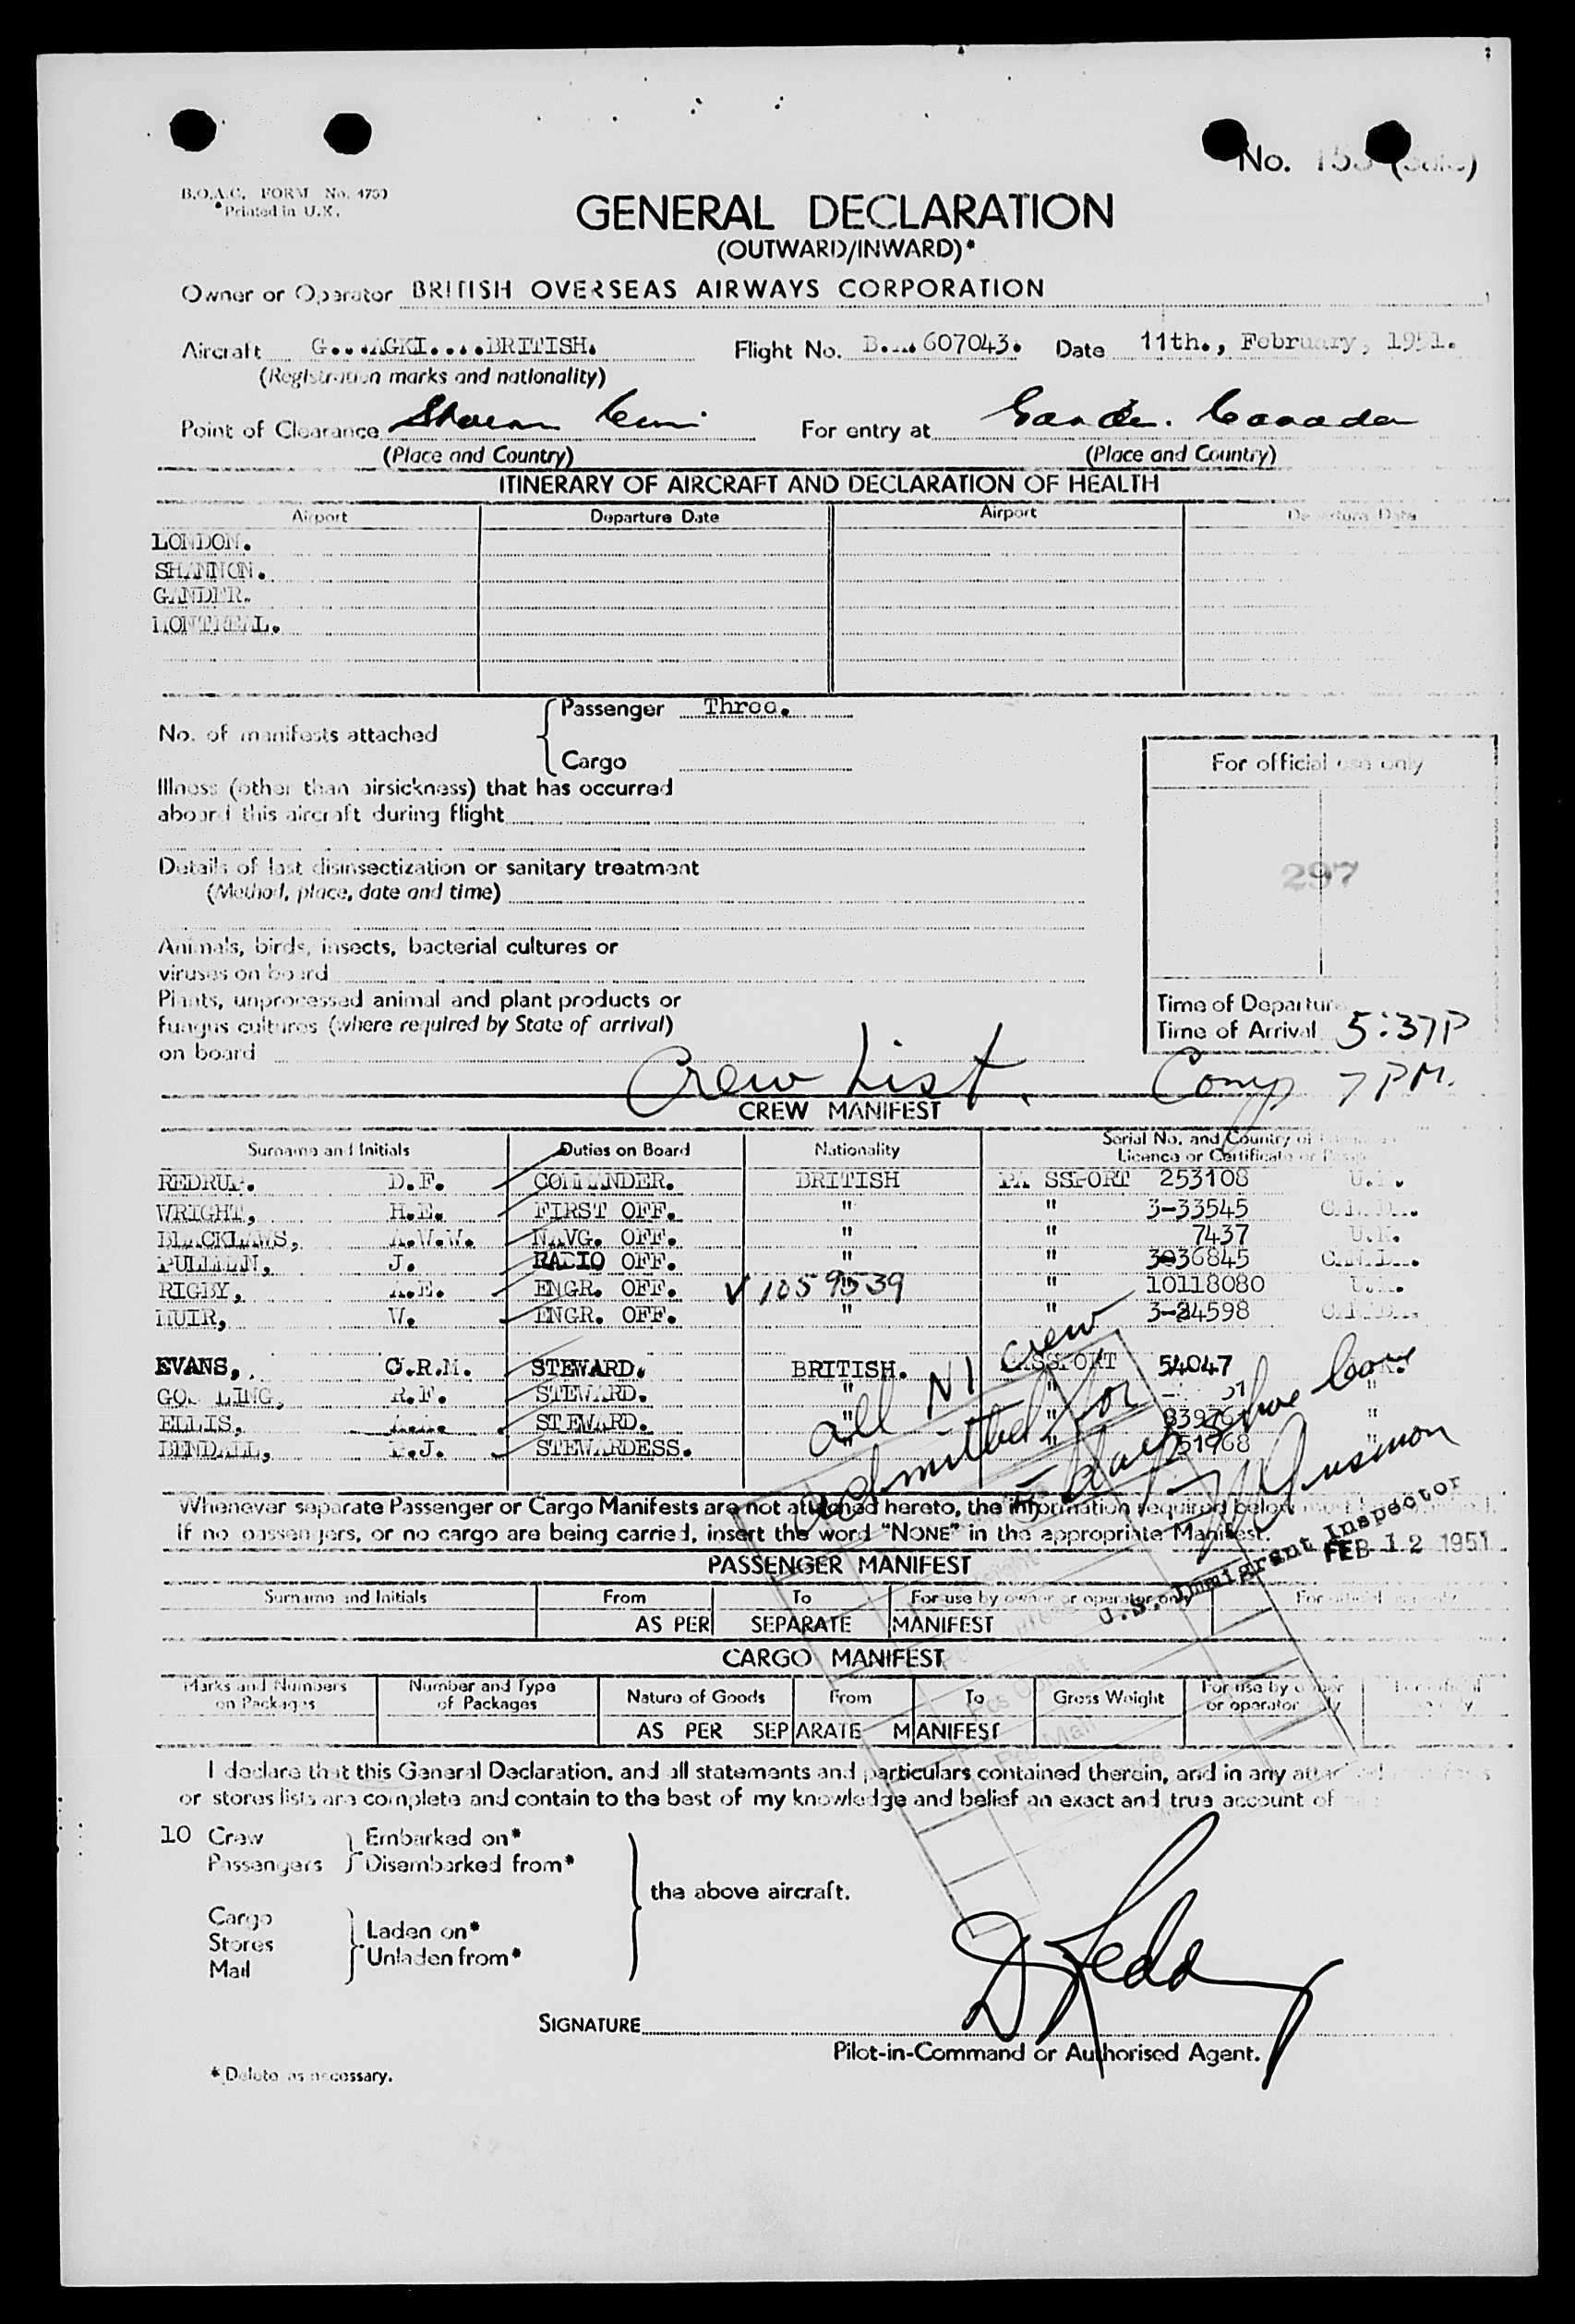 No.
B.O.A.C. FORM No. 4750
*Printed in U.K.
GENERAL DECLARATION
(OUTWARD/INWARD)*
Owner or Operator BRITISH OVERSEAS AIRWAYS CORPORATION
Aircraft G...AGKI....BRITISH. Flight No. B.A.607043. Date 11th., February, 1951.
(Registration marks and nationality)
Point of Clearance For entry at Gander. Canada
(Place and Country) (Place and Country)
ITINERARY OF AIRCRAFT AND DECLARATION OF HEALTH
Airport Departure Date Airport Departure Date
LONDON.
SHANNON.
GANDER.
MONTREAL.
Passenger Three.
No. of manifests attached
Cargo
For official use only
Illness (other than airsickness) that has occurred
aboard this aircraft during flight
297
Details of last disinsectization or sanitary treatment
(Method, place, date and time)
Animals, birds, insects, bacterial cultures or
viruses on board
Plants, unprocessed animal and plant products or
fungus cultures (where required by State of arrival)
on board
Time of Departure
Time of Arrival 5:37P
Crew List. Comp 7 PM.
CREW MANIFEST
Surname and Initials Duties on Board Nationality Serial No. and Country of
Licence or Certificate or
REDRUP. D.F. COMMANDER. BRITISH PA SSPORT 253108 U.K.
WRIGHT, H.E. FIRST OFF. " " 3-33545
BLACKLAWS, A.V.W. NAVG. OFF. " " 7437 U.K.
PULLMAN, J. RADIO OFF. " " 3-36845
RIGBY, A.E. ENGR. OFF. √ 1059539 " " 10118080 U.K.
MUIR, W. ENGR. OFF. " " 3-24598
EVANS, G.R.M. STEWARD. BRITISH. PASSPORT 54047
GOSLING, R.F. STEWARD. " "
ELLIS, A.A. STEWARD. " " "
BENDALL, STEWARDESS. " " 51968 "
all N1 crew
admitted for
5 days shore leave
U.S. Immigrant Inspector
FEB 12 1951
Whenever separate Passenger or Cargo Manifests are not attached hereto, the information required below
If no passengers, or no cargo are being carried, insert the word "NONE" in the appropriate Manifest.
PASSENGER MANIFEST
Surname and Initials From To For use by owner or operator only For official use only
AS PER SEPARATE MANIFEST
CARGO MANIFEST
Marks and Numbers on Packages Number and Type of Packages Nature of Goods From To Gross Weight For use by owner or operator only
AS PER SEPARATE MANIFEST
I declare that this General Declaration, and all statements and particulars contained therein, and in any attached
or stores lists are complete and contain to the best of my knowledge and belief an exact and true account of
10 Crew Embarked on*
Passengers Disembarked from*
the above aircraft.
Cargo
Stores Laden on*
Mail Unladen from*
SIGNATURE
Pilot-in-Command or Authorised Agent.
* Delete as necessary.